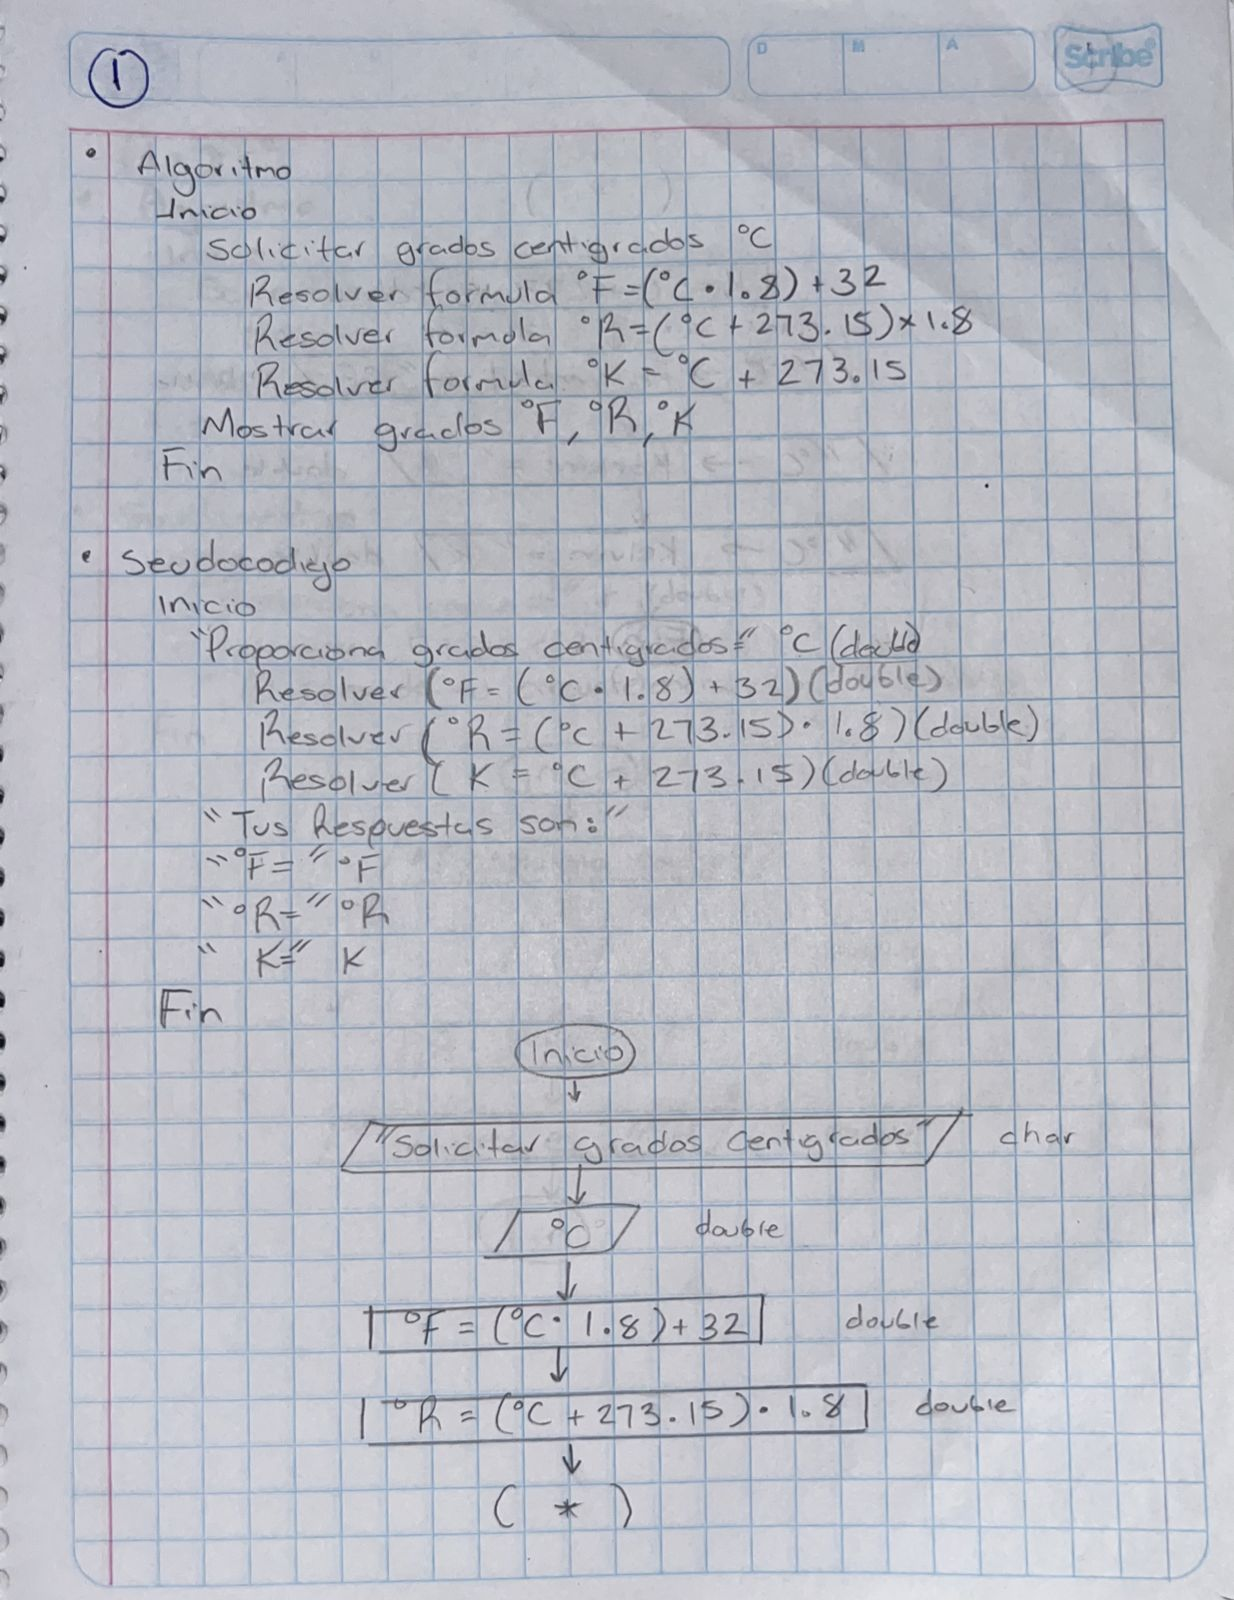 1
D M A
Scribe
• Algoritmo
Inicio
Solicitar grados centigrados °C
Resolver formula °F=(°C • 1.8) + 32
Resolver formula °R=(°C + 273.15) × 1.8
Resolver formula °K = °C + 273.15
Mostrar grados °F, °R, °K
Fin
• Seudocodigo
Inicio
"Proporciona grados centigrados=" °C (double)
Resolver (°F = (°C • 1.8) + 32) (double)
Resolver (°R = (°C + 273.15) • 1.8) (double)
Resolver ( K = °C + 273.15) (double)
"Tus Respuestas son:"
"°F=" °F
"°R=" °R
" K=" K
Fin
Inicio
"Solicitar grados Centigrados" char
°C double
°F = (°C • 1.8) + 32 double
°R = (°C + 273.15) • 1.8 double
( * )